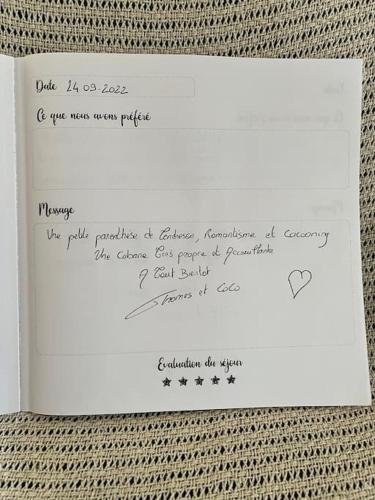 Date 24.09.2022
Ce que nous avons préféré
Message
Une petite parenthèse de Tendresse, Romantisme et Cocooning
Une Cabane très propre et Accueillante
A Tout Bientot
Thomas et CoCo
Evaluation du séjour